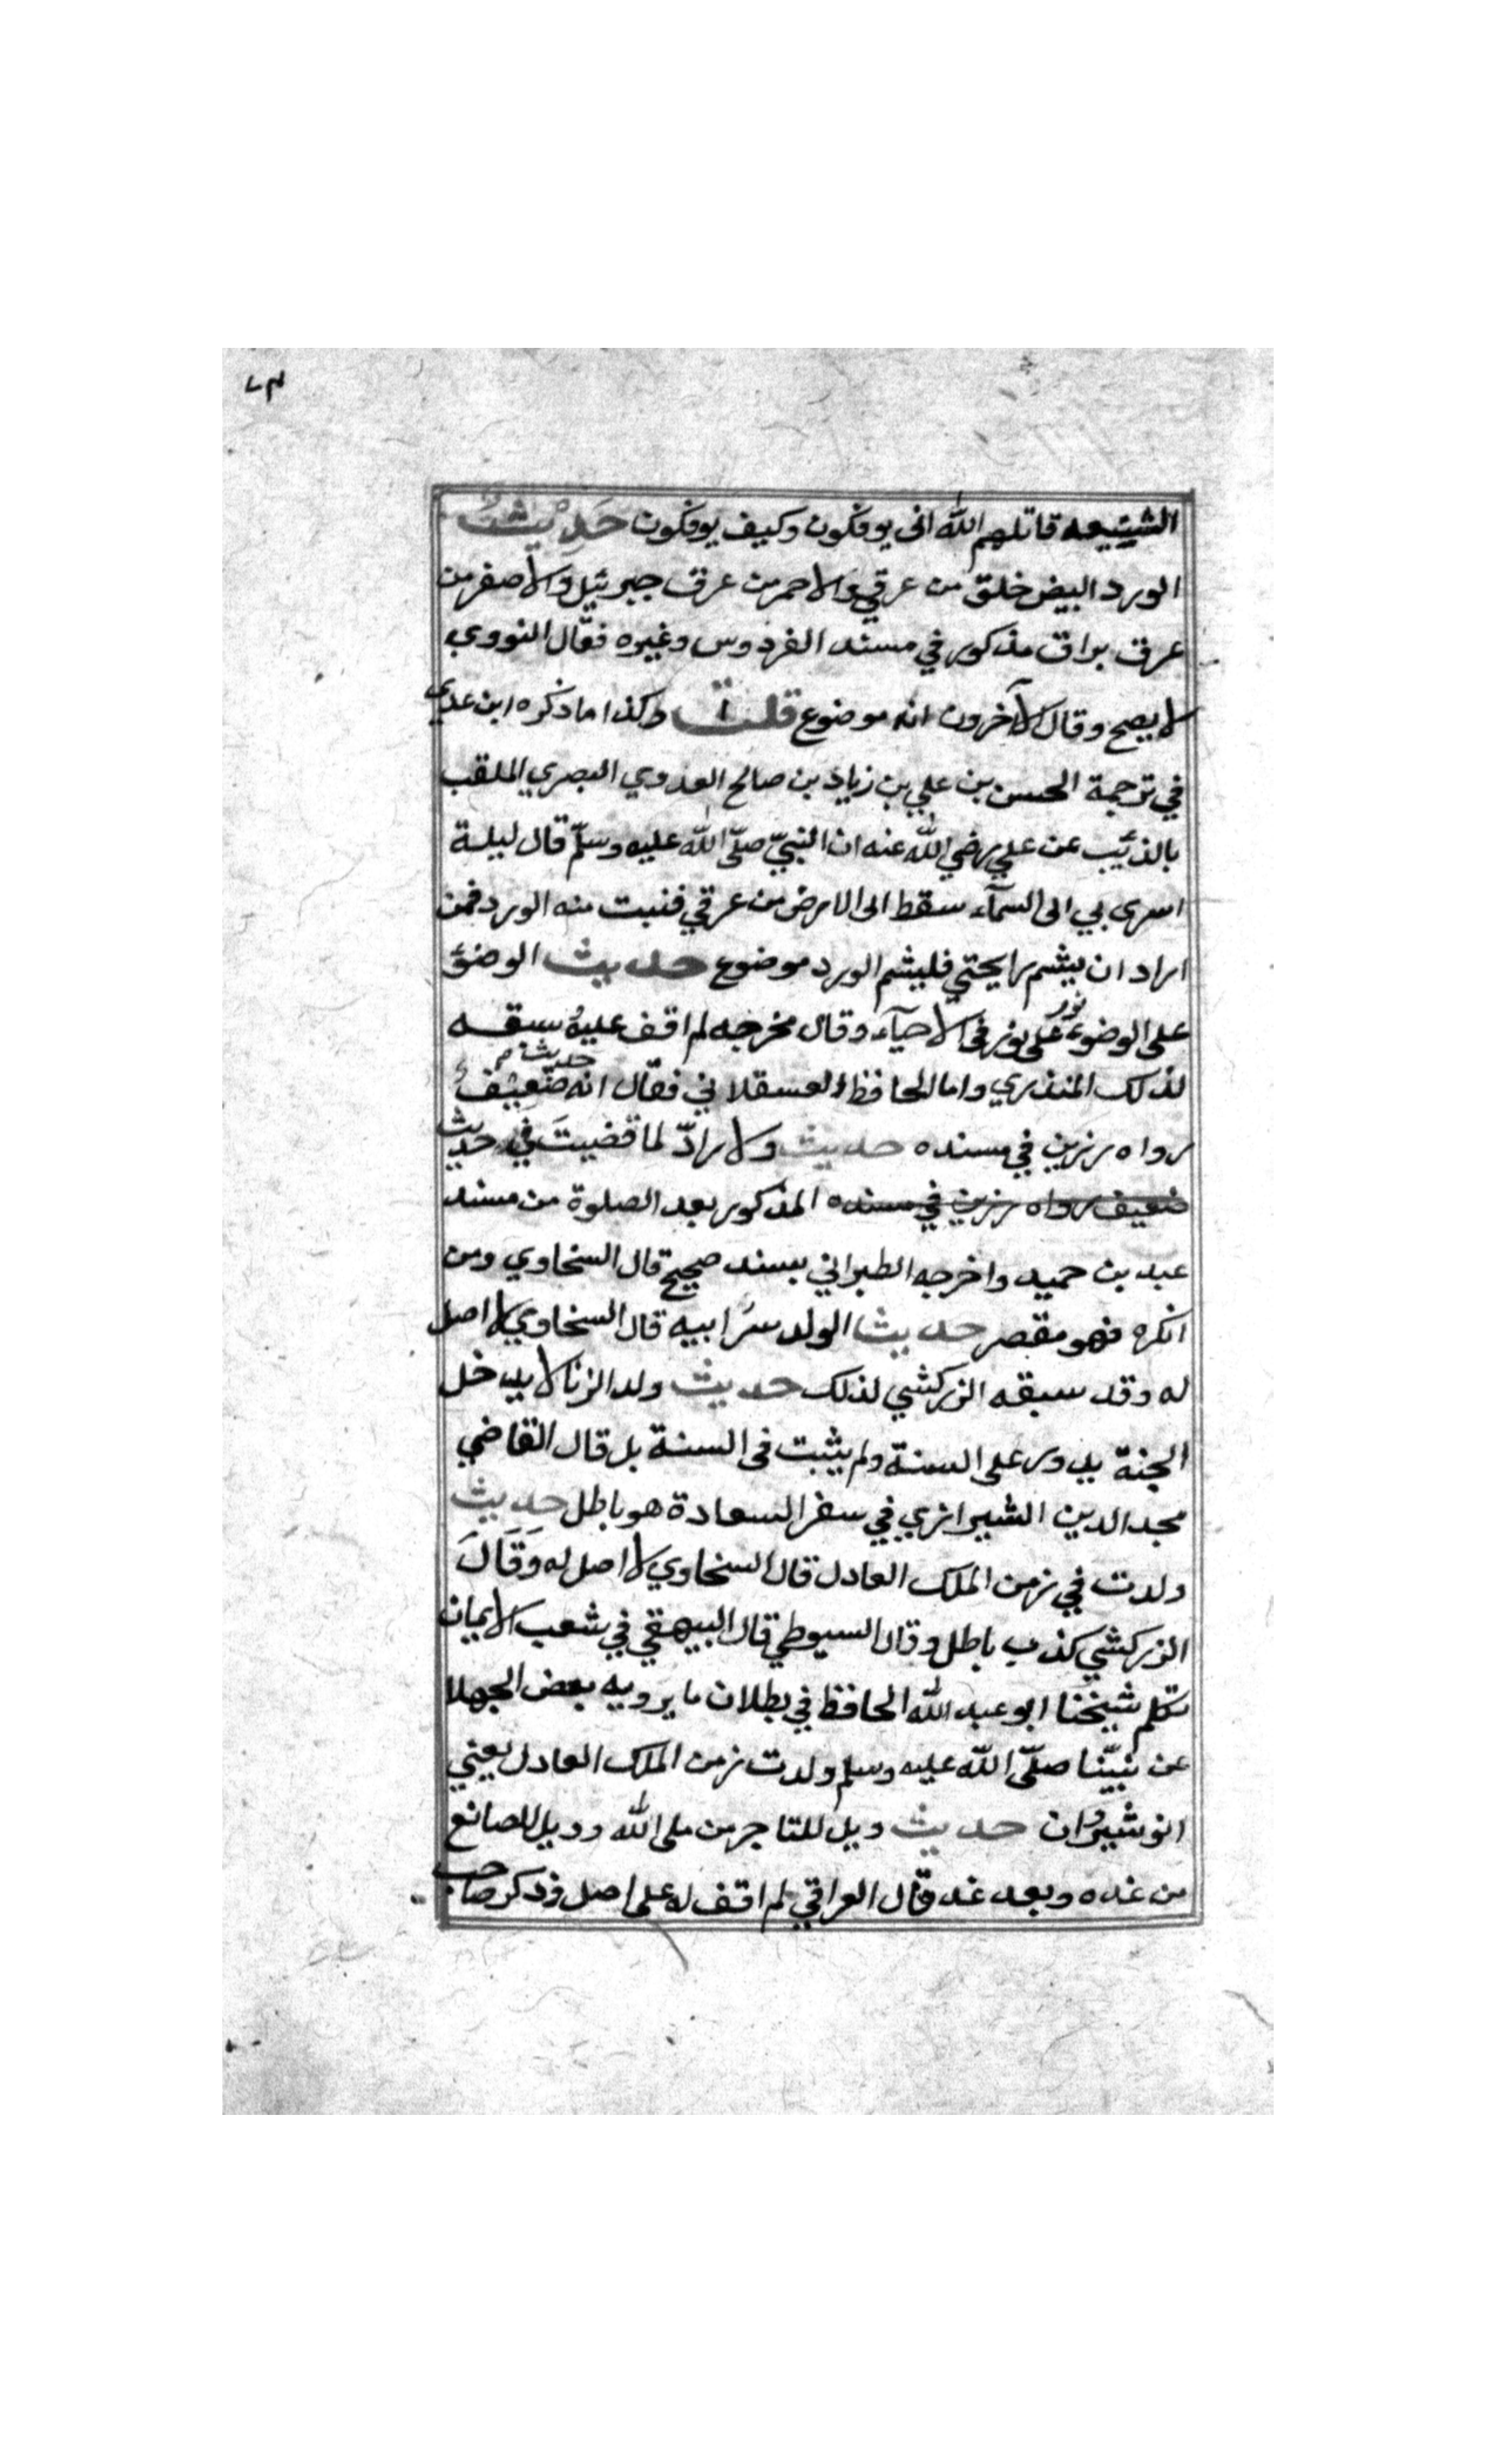 الشيعه قاتلهم الله انى يوفكون وكيف يوفكون حَدِيْثُ
الورد البيض خلق من عرقي والاحمر من عرق جبرئيل والاصفر من
عرق براق مذكور في مسند الفردوس وغيره فقال النووي
لا يصح وقال الآخرون انه موضوع قلت وكذا ما ذكره ابن عدي
في ترجمة الحسن بن علي بن زياد بن صالح العدوي البصري الملقب
بالذئيب عن علي رضي الله عنه ان النبيّ صلّى الله عليه وسلّم قال ليلة
اسرى بي الى السمآء سقط الى الارض من عرقي فنبت منه الورد فمن
اراد ان يشم رايحتي فليشم الورد موضوع حديث الوضؤ
على الوضوء نور على نور فى الاحيآء وقال مخرجه لم اقف عليه سبقه
لذلك المنذري واما الحافظ العسقلاني فقال انه حديث ضعيف
رواه رزين في مسنده حديث ولا رادّ لما قضيتَ في حديث
ضعيف رواه رزين في مسنده المذكور بعد الصلوة من مسند
عبد بن حميد واخرجه الطبراني بسند صحيح قال السخاوي ومن
انكره فهو مقصر حديث الولد سرّ ابيه قال السخاوي لا اصل
له وقد سبقه الزركشي لذلك حديث ولد الزنا لا يدخل
الجنة يدور على السنة ولم يثبت فى السنة بل قال القاضي
مجد الدين الشيرازي في سفر السعادة هو باطل حديث
ولدت في زمن الملك العادل قال السخاوي لا اصل له وَقَالَ
الزركشي كذب باطل وقال السيوطي قال البيهقي في شعب الايمان
تكلم شيخنا ابو عبد الله الحافظ في بطلان ما يرويه بعض الجهلا
عن نبيّنا صلّى الله عليه وسلم ولدت زمن الملك العادل يعني
انوشيروان حديث ويل للتاجر من بلى الله وويل للصانع
من غده وبعد غد قال العراقي لم اقف له على اصل وذكر صاحب